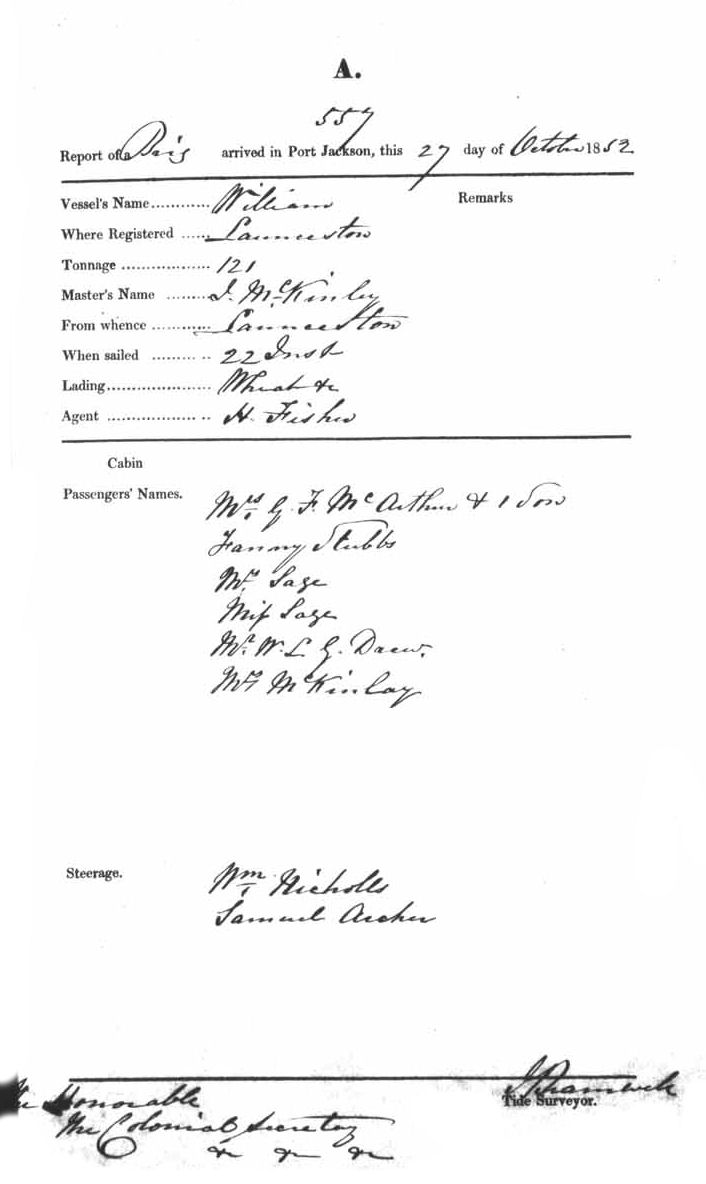 A.
557
Report of a Brig arrived in Port Jackson, this 27 day of October 1852
Vessel's Name............ William Remarks
Where Registered ...... Launceston
Tonnage .................. 121
Master's Name ........ J. McKinlay
From whence ............ Launceston
When sailed ......... .. 22 Inst
Lading..................... Wheat &c
Agent .................. .. H. Fisher
Cabin
Passengers' Names.
Mrs G. F. McArthur & 1 Son
Fanny Stubbs
Mr. Sage
Miss Sage
Mr. W. L. G. Drew.
Mrs McKinlay
Steerage.
Wm Nicholls
Samuel Archer
Tide Surveyor.
The Honorable
The Colonial Secretary
&c &c &c